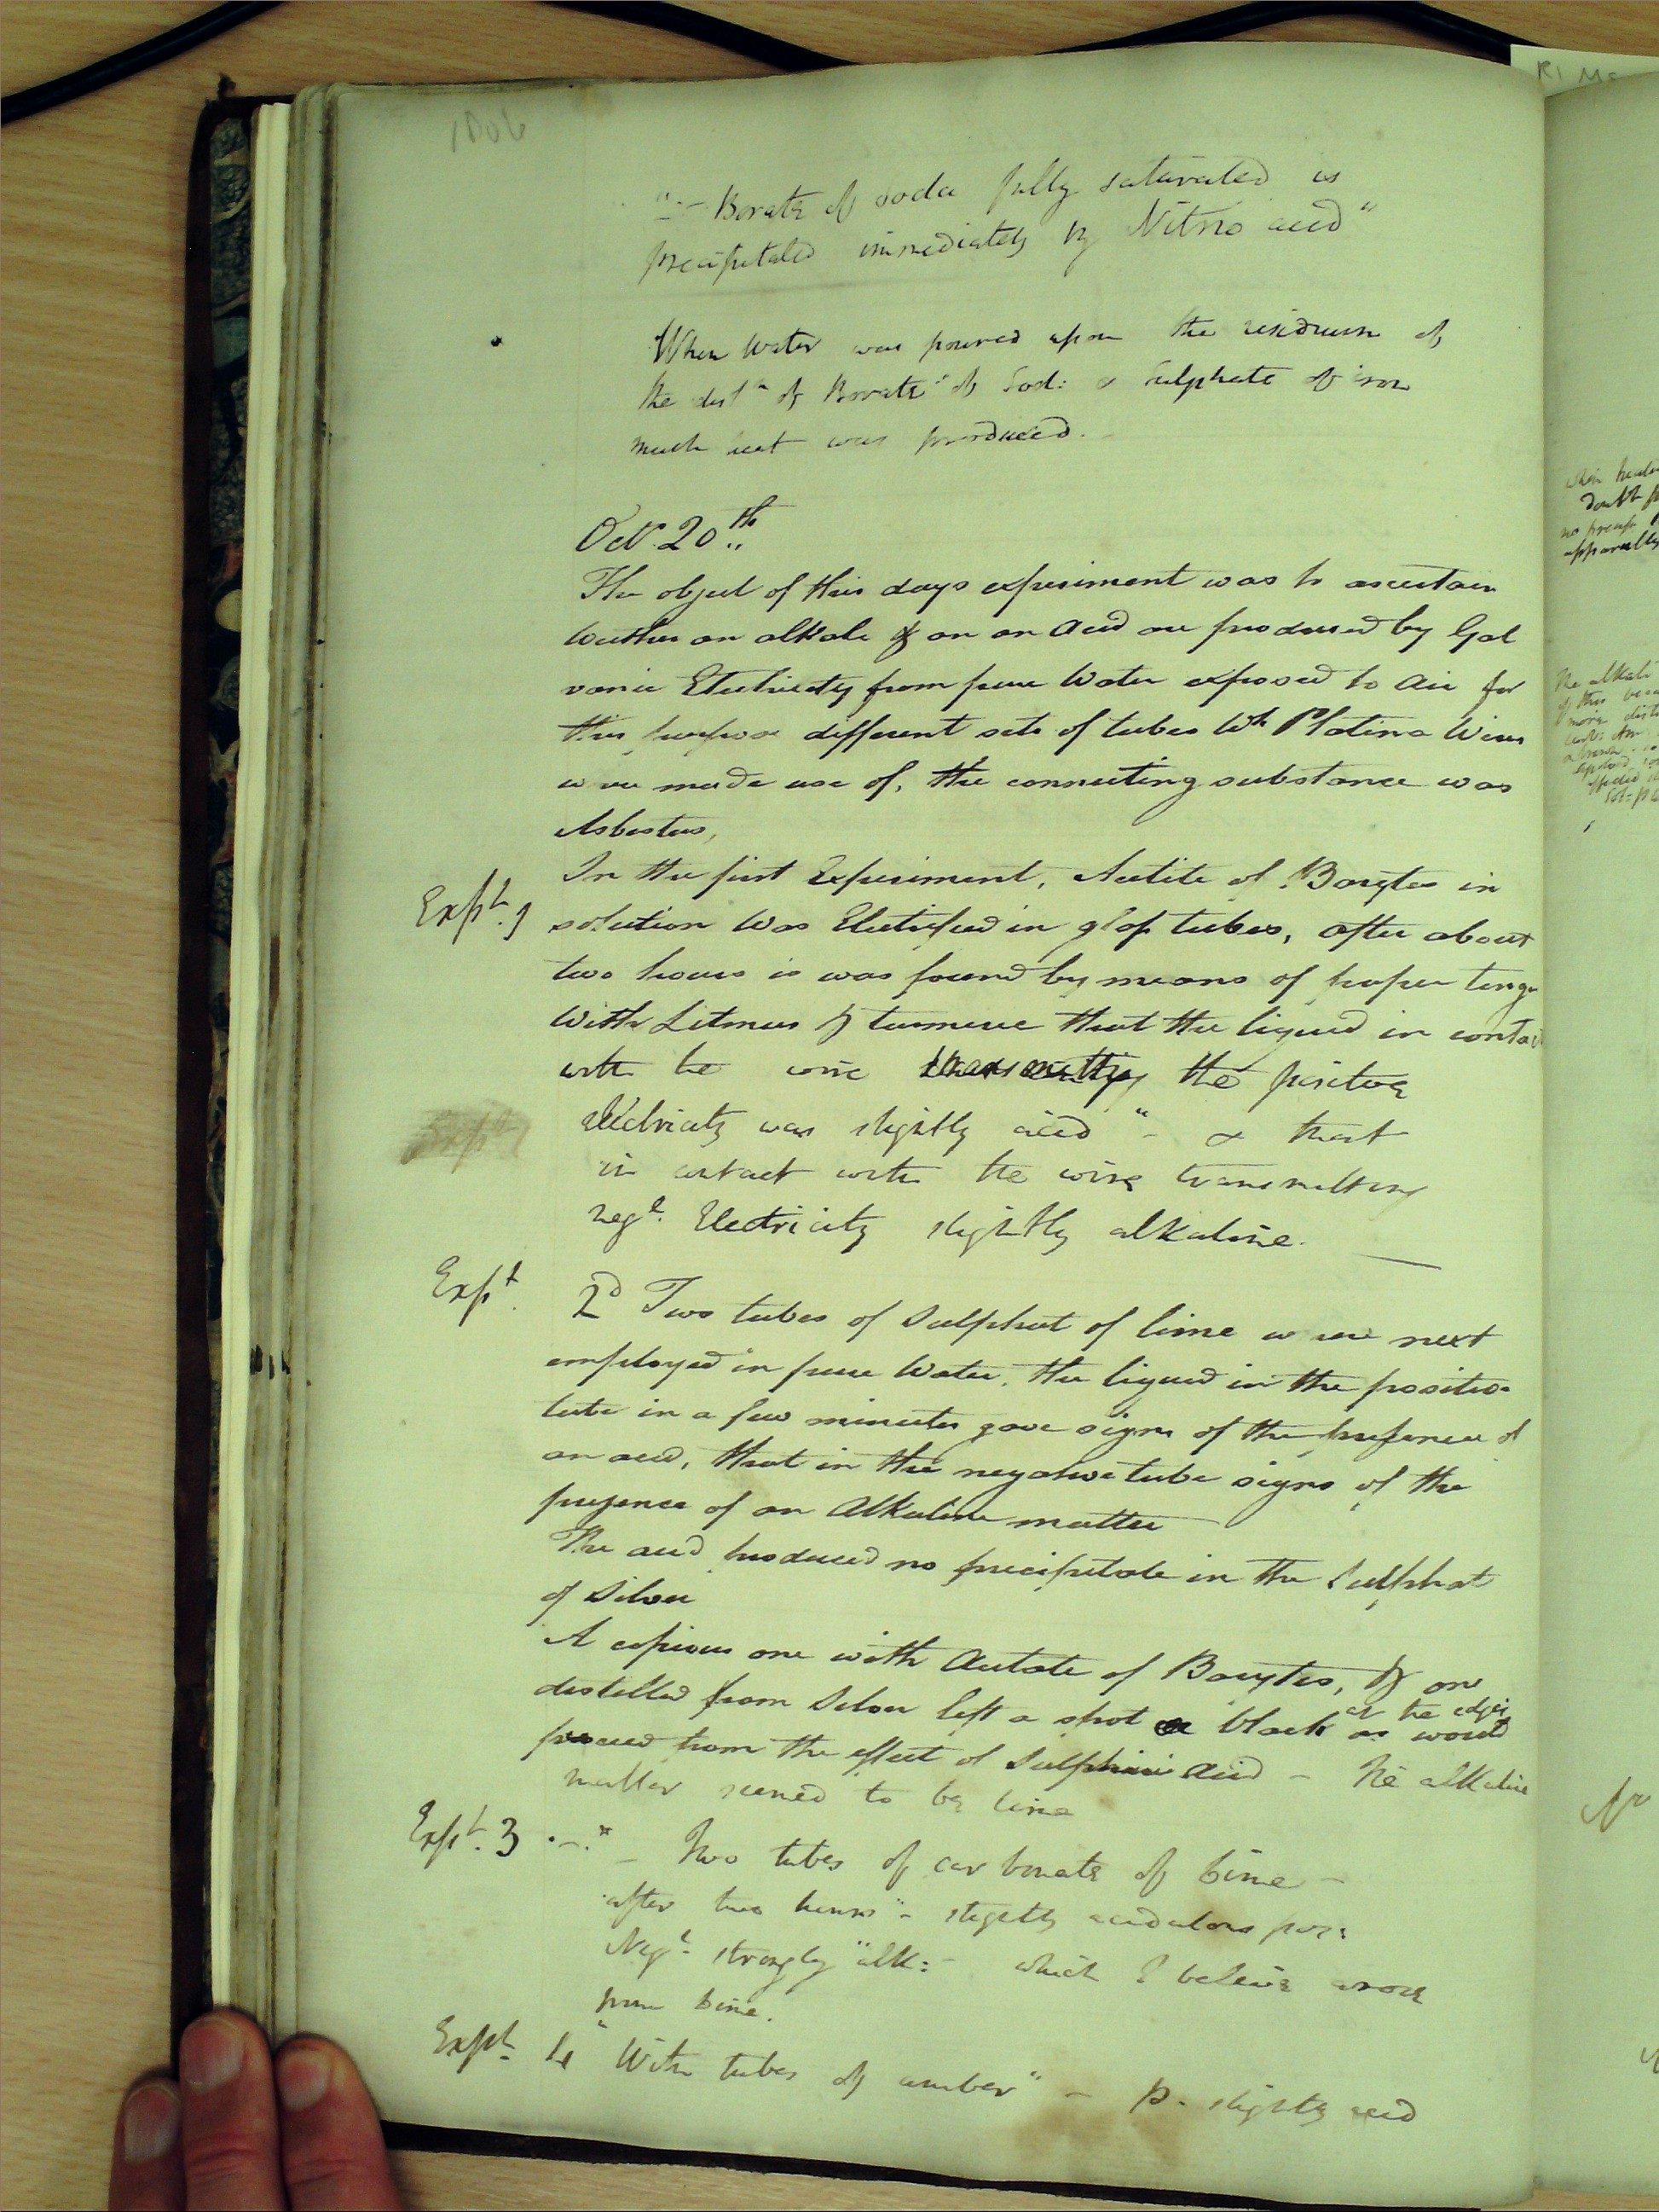 1806
"- Borate of Soda fully saturated is
precipitated immediately by Nitric acid"
When Water was poured upon the residuum of
the dist.n of Borate of Sod: & Sulphate of iron
much heat was produced.
Oct. 20th
The object of this days experiment was to ascertain
weather an alkali & an an Acid are produced by Gal
vanic Electricity from pure Water exposed to Air for
this purpose different sets of tubes Wh Platina Wires
were made use of, the connecting substance was
Asbestus,
In the first Experiment, Acetite of Barytes in
Expt. 1 solution Was Electrified in glass tubes, after about
two hours is was found by means of paper tinge
With Litmus & turmeric that the liquid in contac
with the wire transmitting the positive
Expt
electricity was slightly acid" - & that
in contact with the wire transmitting
negt. Electricity slightly alkaline.
Expt. 2d Two tubes of Sulphat of lime were next
employed in pure Water, the liquid in the positive
tube in a few minutes gave signs of the presence of
an acid, that in the negative tube signs of the
presence of an Alkaline matter
The acid produced no precipitate in the Sulphat
of Silver
A copious one with Acetate of Barytes, & one
distilled from Silver left a spot black at the edges as would
proceed from the effect of Sulphuric Acid - The alkaline
matter seemed to be lime
Expt. 3 - Two tubes of carbonate of lime -
after two hours" - slightly acidulous pos:
Negt. strongly "alk: - which I believe arose
from lime.
Expt. 4 "With tubes of amber" - p. slightly acid
RI MS
when heate
doubt p
no precip
apparently
The alkali
of this
more dist